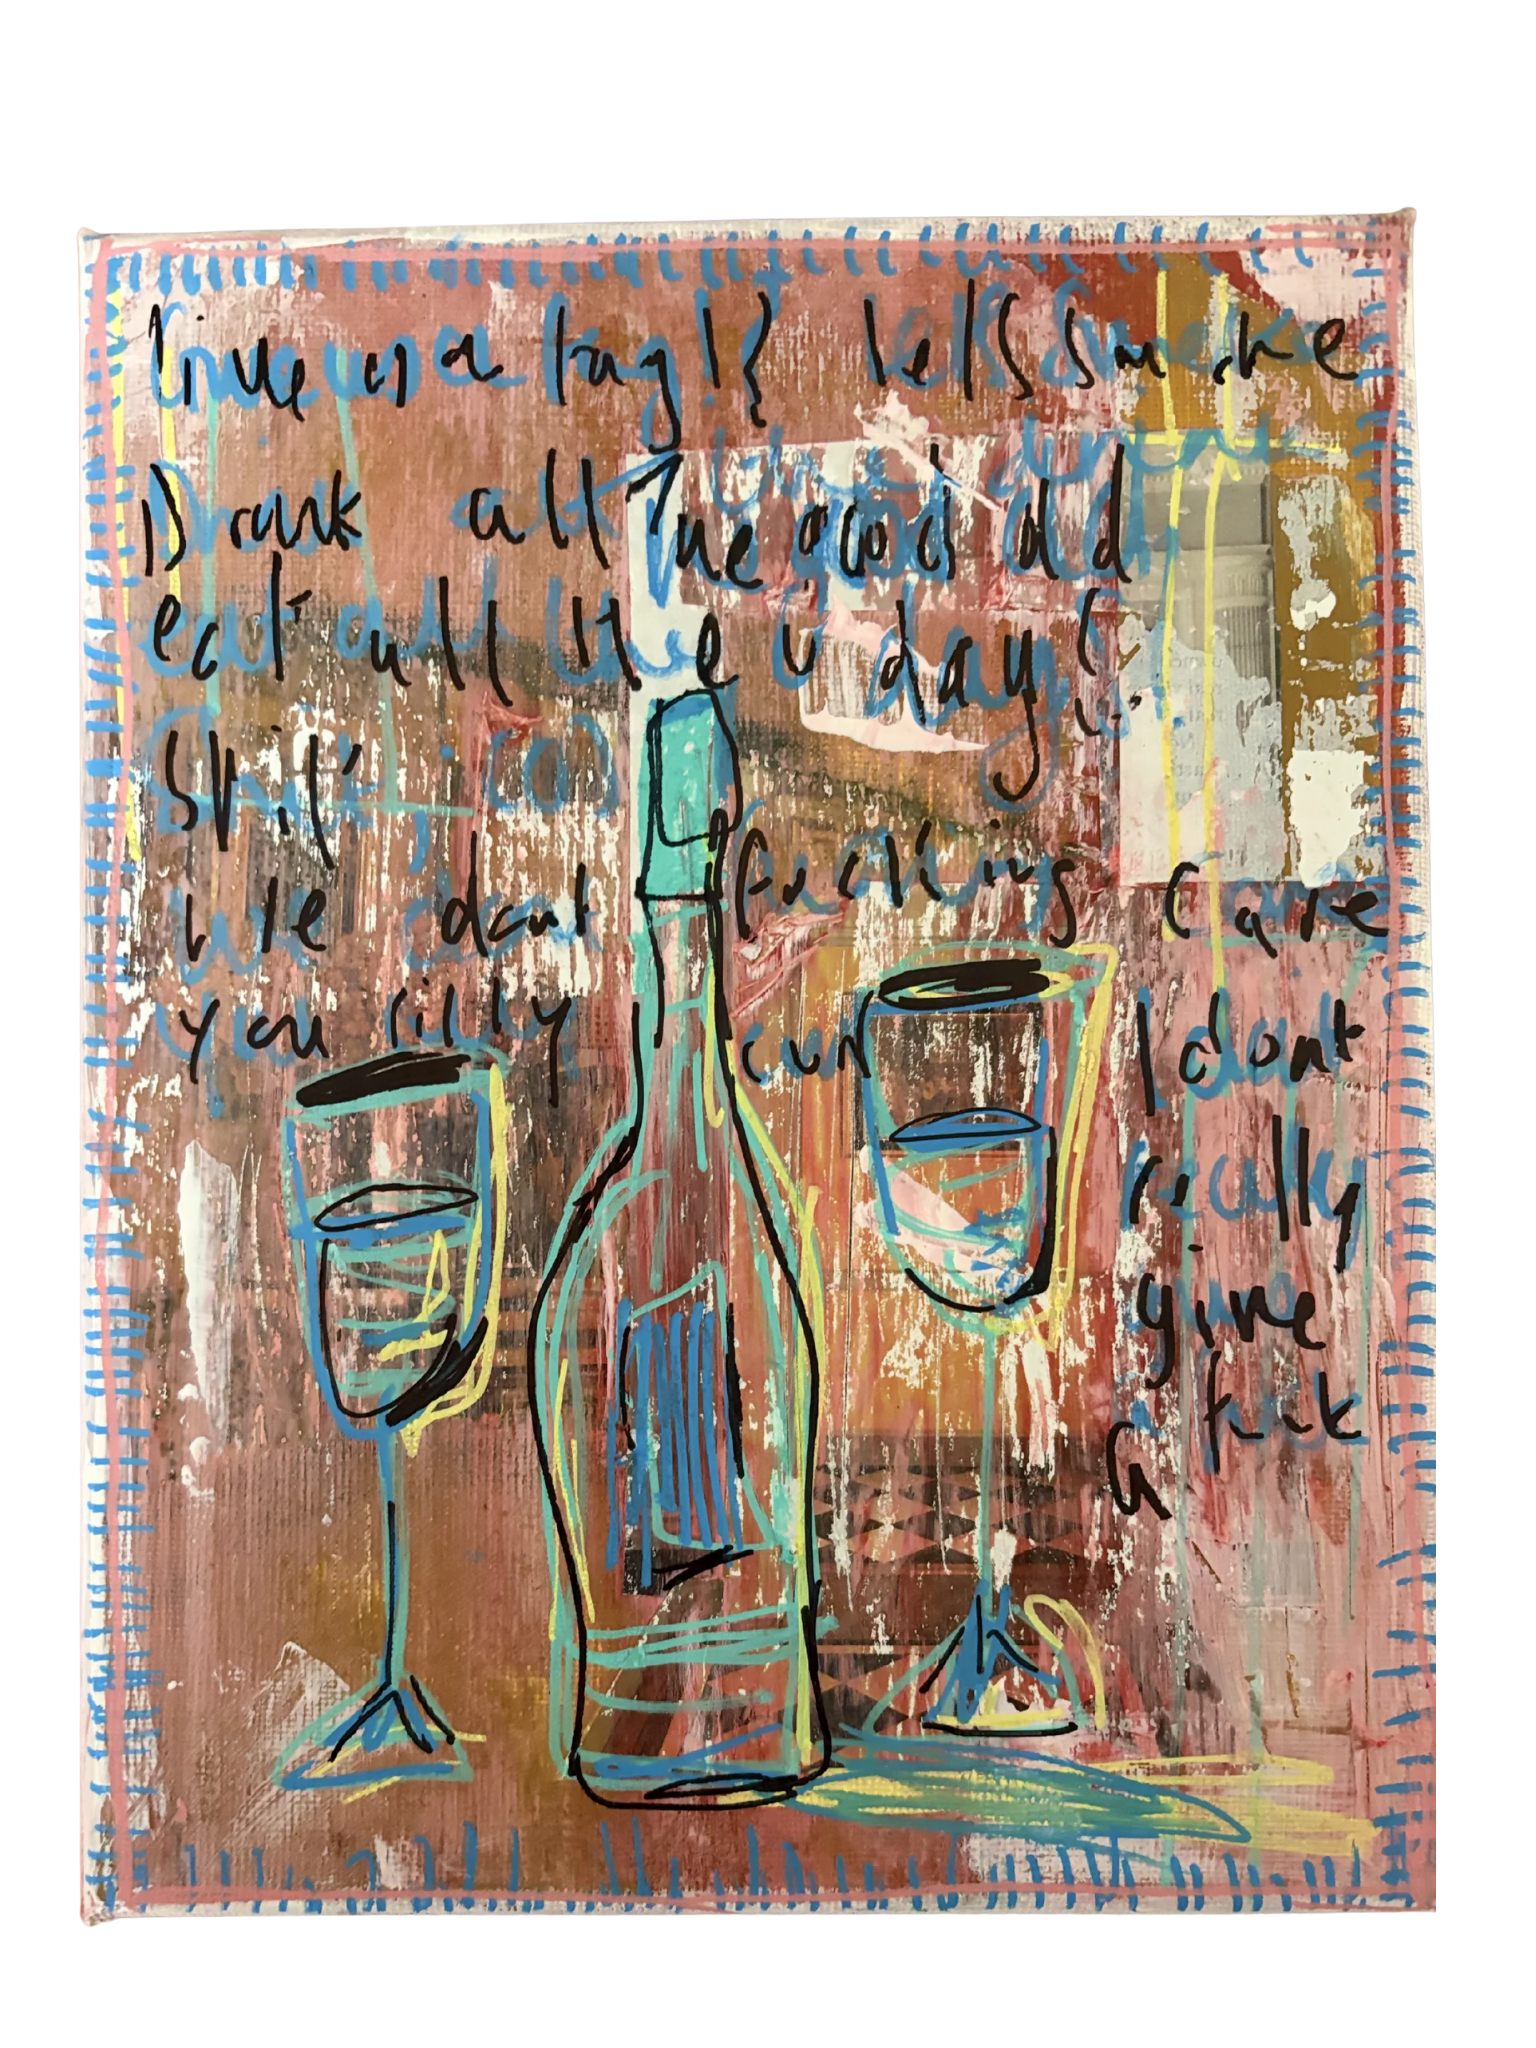 Give us a fag!{ let's smoke
Drank all the good
eat all the day
Shit
we dont fucking care
you silly cun I dont
really
give
a fuck